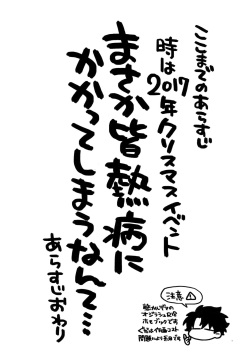 ここまでのあらすじ
時は2017年クリスマスイベント
まさか皆熱病に
かかってしまうなんて…
あらすじおわり
注意⚠